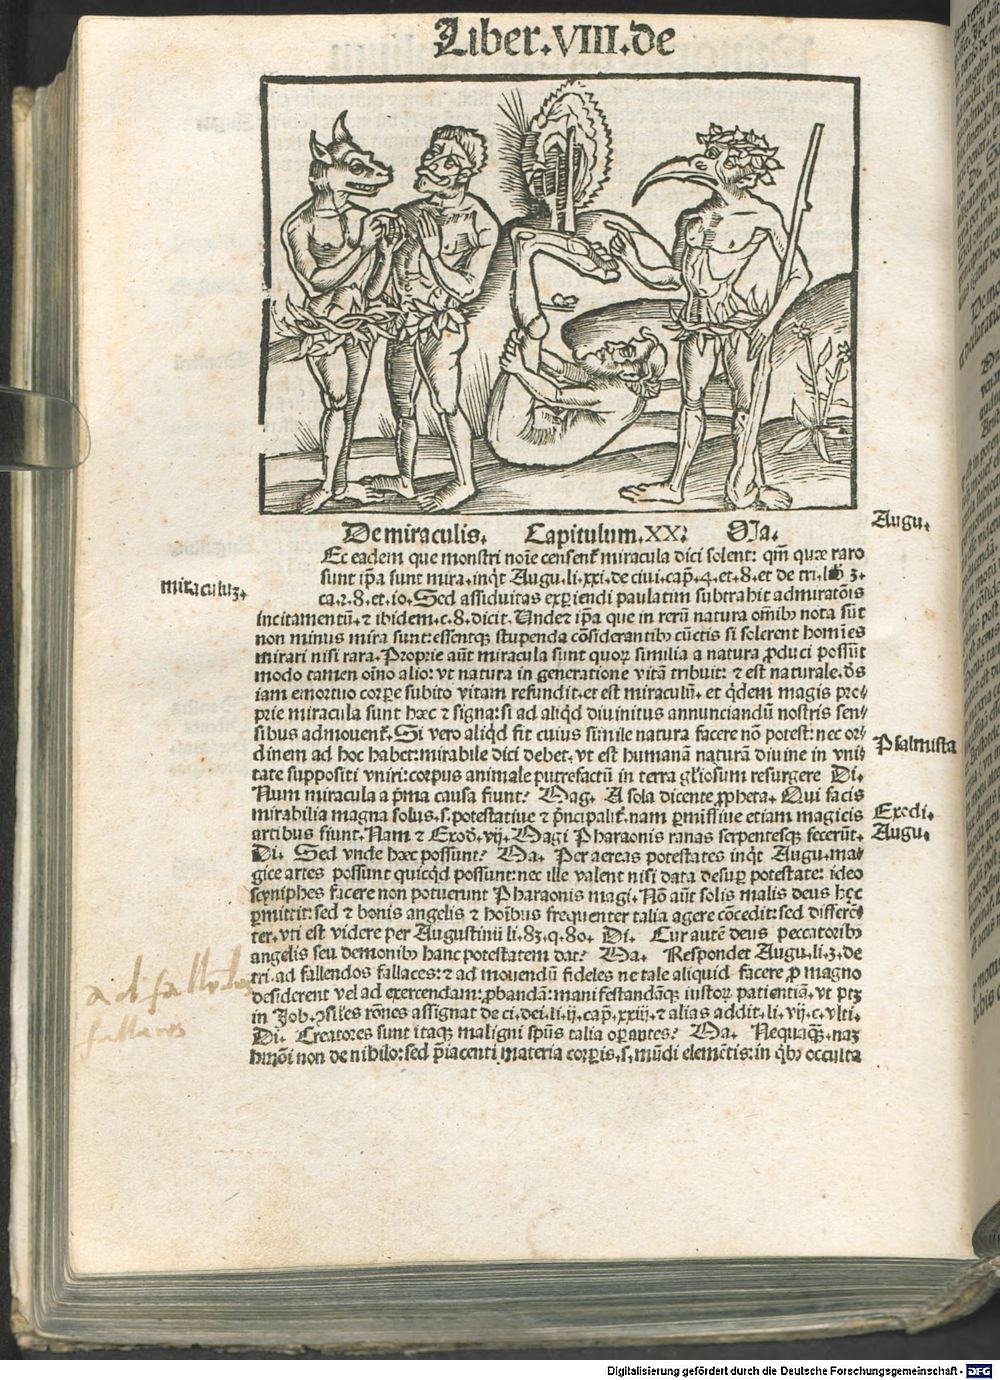 Liber.VIII.de
De miraculis. Capitulum.XX: Ma.
Augu.
Ec eadem que monstri noīe censent᷑ miracula dici solent: qm̄ quæ raro
sunt ip̄a sunt mira.inq̇t Augu.li.xxi.de ciui.cap̄.4.et.8.et de tri.lib 3.
miraculuꝫ.
ca.2.8.et.10.Sed assiduitas exꝑiendi paulatim subtrahit admiratōis
incitamentū.⁊ ibidem.c.8.dicit. Unde ip̄a que in rerū natura om̄ibꝫ nota sūt
non minus mira sunt: essentqꝫ stupenda cōsiderantibꝫ cūctis si solerent homīes
mirari nisi rara. Proprie aūt miracula sunt quoꝝ similia a natura ꝓduci possūt
modo tamen oīno alio: vt natura in generatione vitā tribuit: ⁊ est naturale. d̄s
iam emortuo corꝑe subito vitam refundit.et est miraculū. et q̇dem magis pro⸗
prie miracula sunt hæc ⁊ signa: si ad aliq̇d diuinitus annunciandū nostris sen⸗
sibus admouent᷑. Si vero aliq̇d fit cuius simile natura facere nō potest: nec or⸗
Psalmista
dinem ad hoc habet: mirabile dici debet. vt est humanā naturā diuine in vni⸗
tate suppositi vniri: corpus animale putrefactū in terra gl̄iosum resurgere Di.
Num miracula a pͥma causa fiunt? Mag. A sola dicente ꝓpheta. Qui facis
Exodi.
mirabilia magna solus.s.potestatiue ⁊ pͥncipalit᷑. nam ꝑmissiue etiam magicis
Augu.
artibus fiunt. Nam ⁊ Exod̄.vij. Magi Pharaonis ranas serpentesqꝫ fecerūt.
Di. Sed vnde hæc possunt? Ma. Per aereas potestates inq̇t Augu.ma⸗
gice artes possunt quicq̇d possunt: nec ille valent nisi data desuꝑ potestate: ideo
scyniphes facere non potuerunt Pharaonis magi. Nō aūt solis malis deus hęc
ꝑmittit: sed ⁊ bonis angelis ⁊ hoībus frequenter talia agere cōcedit: sed differē⸗
ter. vti est videre per Augustinū li.83.q.80. Di. Cur autē deus peccatoribꝫ
angelis seu demonibꝫ hanc potestatem dat? Ma. Respondet Augu.li.3.de
ad fallendos
tri.ad fallendos fallaces: ⁊ ad mouendū fideles ne tale aliquid facere ꝓ magno
desiderent vel ad exercendam: ꝓbandā: manifestandāqꝫ iustoꝝ patientiā. vt ptꝫ
fallaces
in Job. ꝯsil̄es rōnes assignat de ci.dei.li.ij.cap̄.xxiij. ⁊ alias addit.li.vij.c.vlti.
Di. Creatores sunt itaqꝫ maligni spūs talia oꝑantes? Ma. Nequaqꝫ. naꝫ
hmōi non de nihilo: sed p̄iacenti materia corꝑis.s.mūdi elemētis: in q̇bꝫ occulta
Digitalisierung gefördert durch die Deutsche Forschungsgemeinschaft - DFG